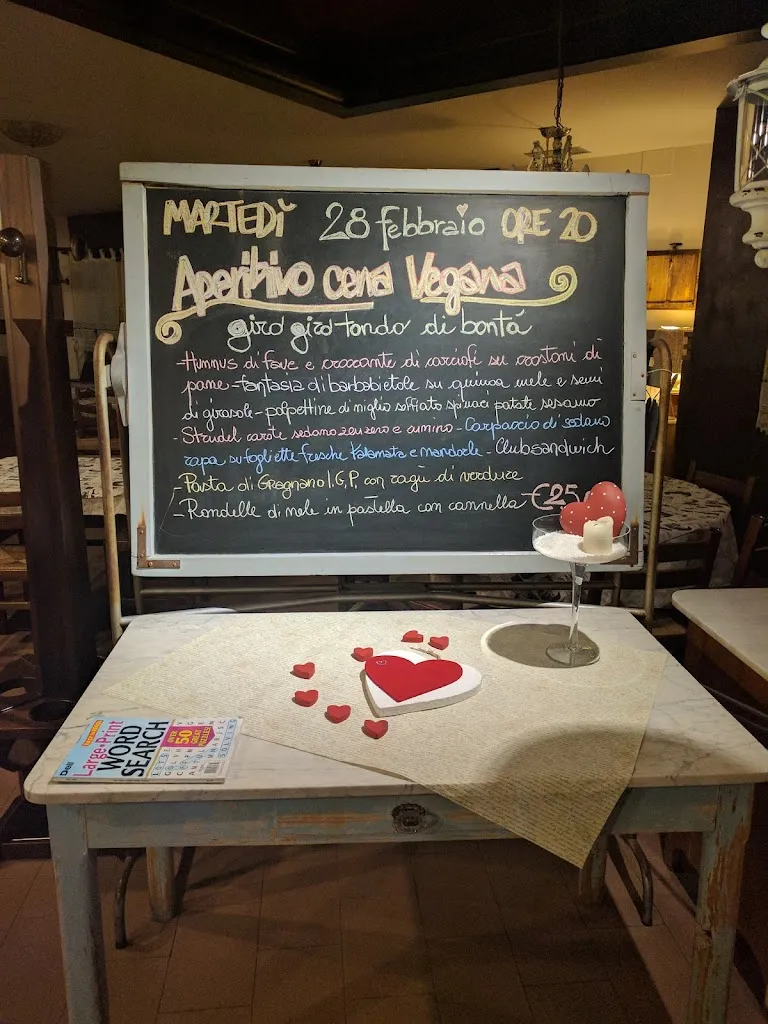 MARTEDÌ 28 febbraio ORE 20
Aperitivo cena Vegana
giro giro tondo di bontà
-Hummus di fave e croccante di carciofi su crostoni di
pane-fantasia di barbabietole su quinoa mele e semi
di girasole-polpettine di miglio soffiato spinaci patate sesamo
-Strudel carote sedano zenzero e cumino-Carpaccio di sedano
rapa su fogliette fresche Kalamata e mandorle-Clubsandwich
-Pasta di Gragnano I.G.P. con ragù di verdure
-Rondelle di mele in pastella con cannella €25
Large-Print
WORD
SEARCH
OVER
50
GREAT
PUZZLES!